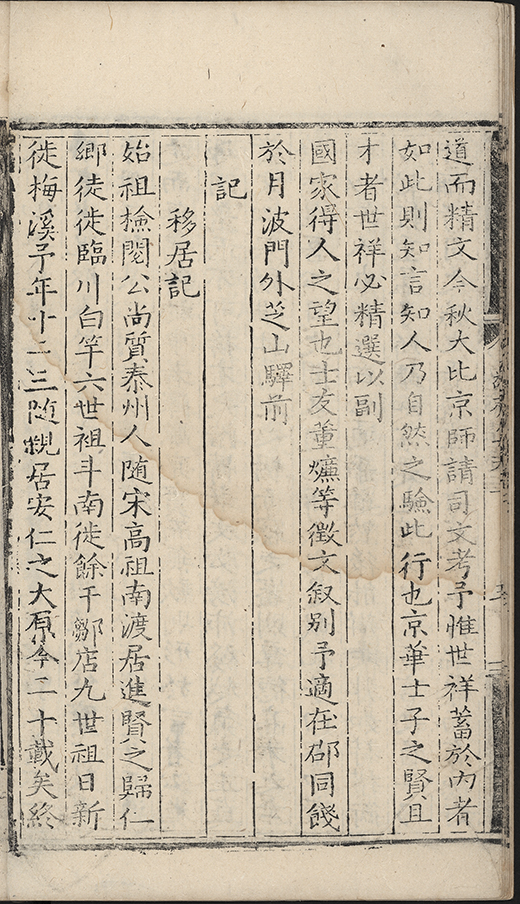 道而精文今秋大比京師請司文考予惟世祥蓄於內者
如此則知言知人乃自然之驗此行也京華士子之賢且
才者世祥必精選以副
國家得人之望也士友董爊等徵文叙别予適在邵同餞
於月波門外芝山驛前
記
移居記
始祖檢閱公尚質泰州人隨宋高祖南渡居進賢之歸仁
鄉徒徙臨川白竿六世祖斗南徙餘干鄒店九世祖日新
徙梅溪予年十二三随親居安仁之大原今二十載矣終